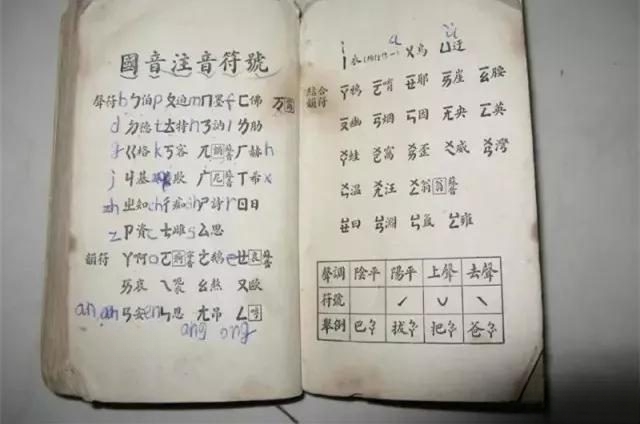 國音注音符號
聲符 b ㄅ伯 p ㄆ迫 m ㄇ墨 f ㄈ佛 万
d ㄉ德 t ㄊ特 n ㄋ訥 l ㄌ肋
g ㄍ格 k ㄎ客 兀 ㄏ赫 h
j ㄐ基 ㄑ欺 广 ㄒ希 x
zh ㄓ知 ch ㄔ痴 sh ㄕ詩 r ㄖ日
z ㄗ資 c ㄘ雌 s ㄙ思
韻符 ㄚ啊 ㄛ ㄜ鵝 e ㄝ
ㄞ哀 ㄟ ㄠ熬 ㄡ歐
an ㄢ安 en ㄣ恩 ㄤ昂 ㄥ
ang ong
a ü
ㄧ衣 ㄨ烏 ㄩ迂
結合韻符 ㄧㄚ鴉 ㄧㄛ唷 ㄧㄝ耶 ㄧㄞ崖 ㄧㄠ腰
ㄧㄡ幽 ㄧㄢ烟 ㄧㄣ因 ㄧㄤ央 ㄧㄥ英
ㄨㄚ蛙 ㄨㄛ窩 ㄨㄞ歪 ㄨㄟ威 ㄨㄢ灣
ㄨㄣ溫 ㄨㄤ汪 ㄨㄥ翁
ㄩㄝ曰 ㄩㄢ淵 ㄩㄣ氳 ㄩㄥ雍
聲調 陰平 陽平 上聲 去聲
符號 ˊ ˇ ˋ
舉例 巴 拔 把 爸